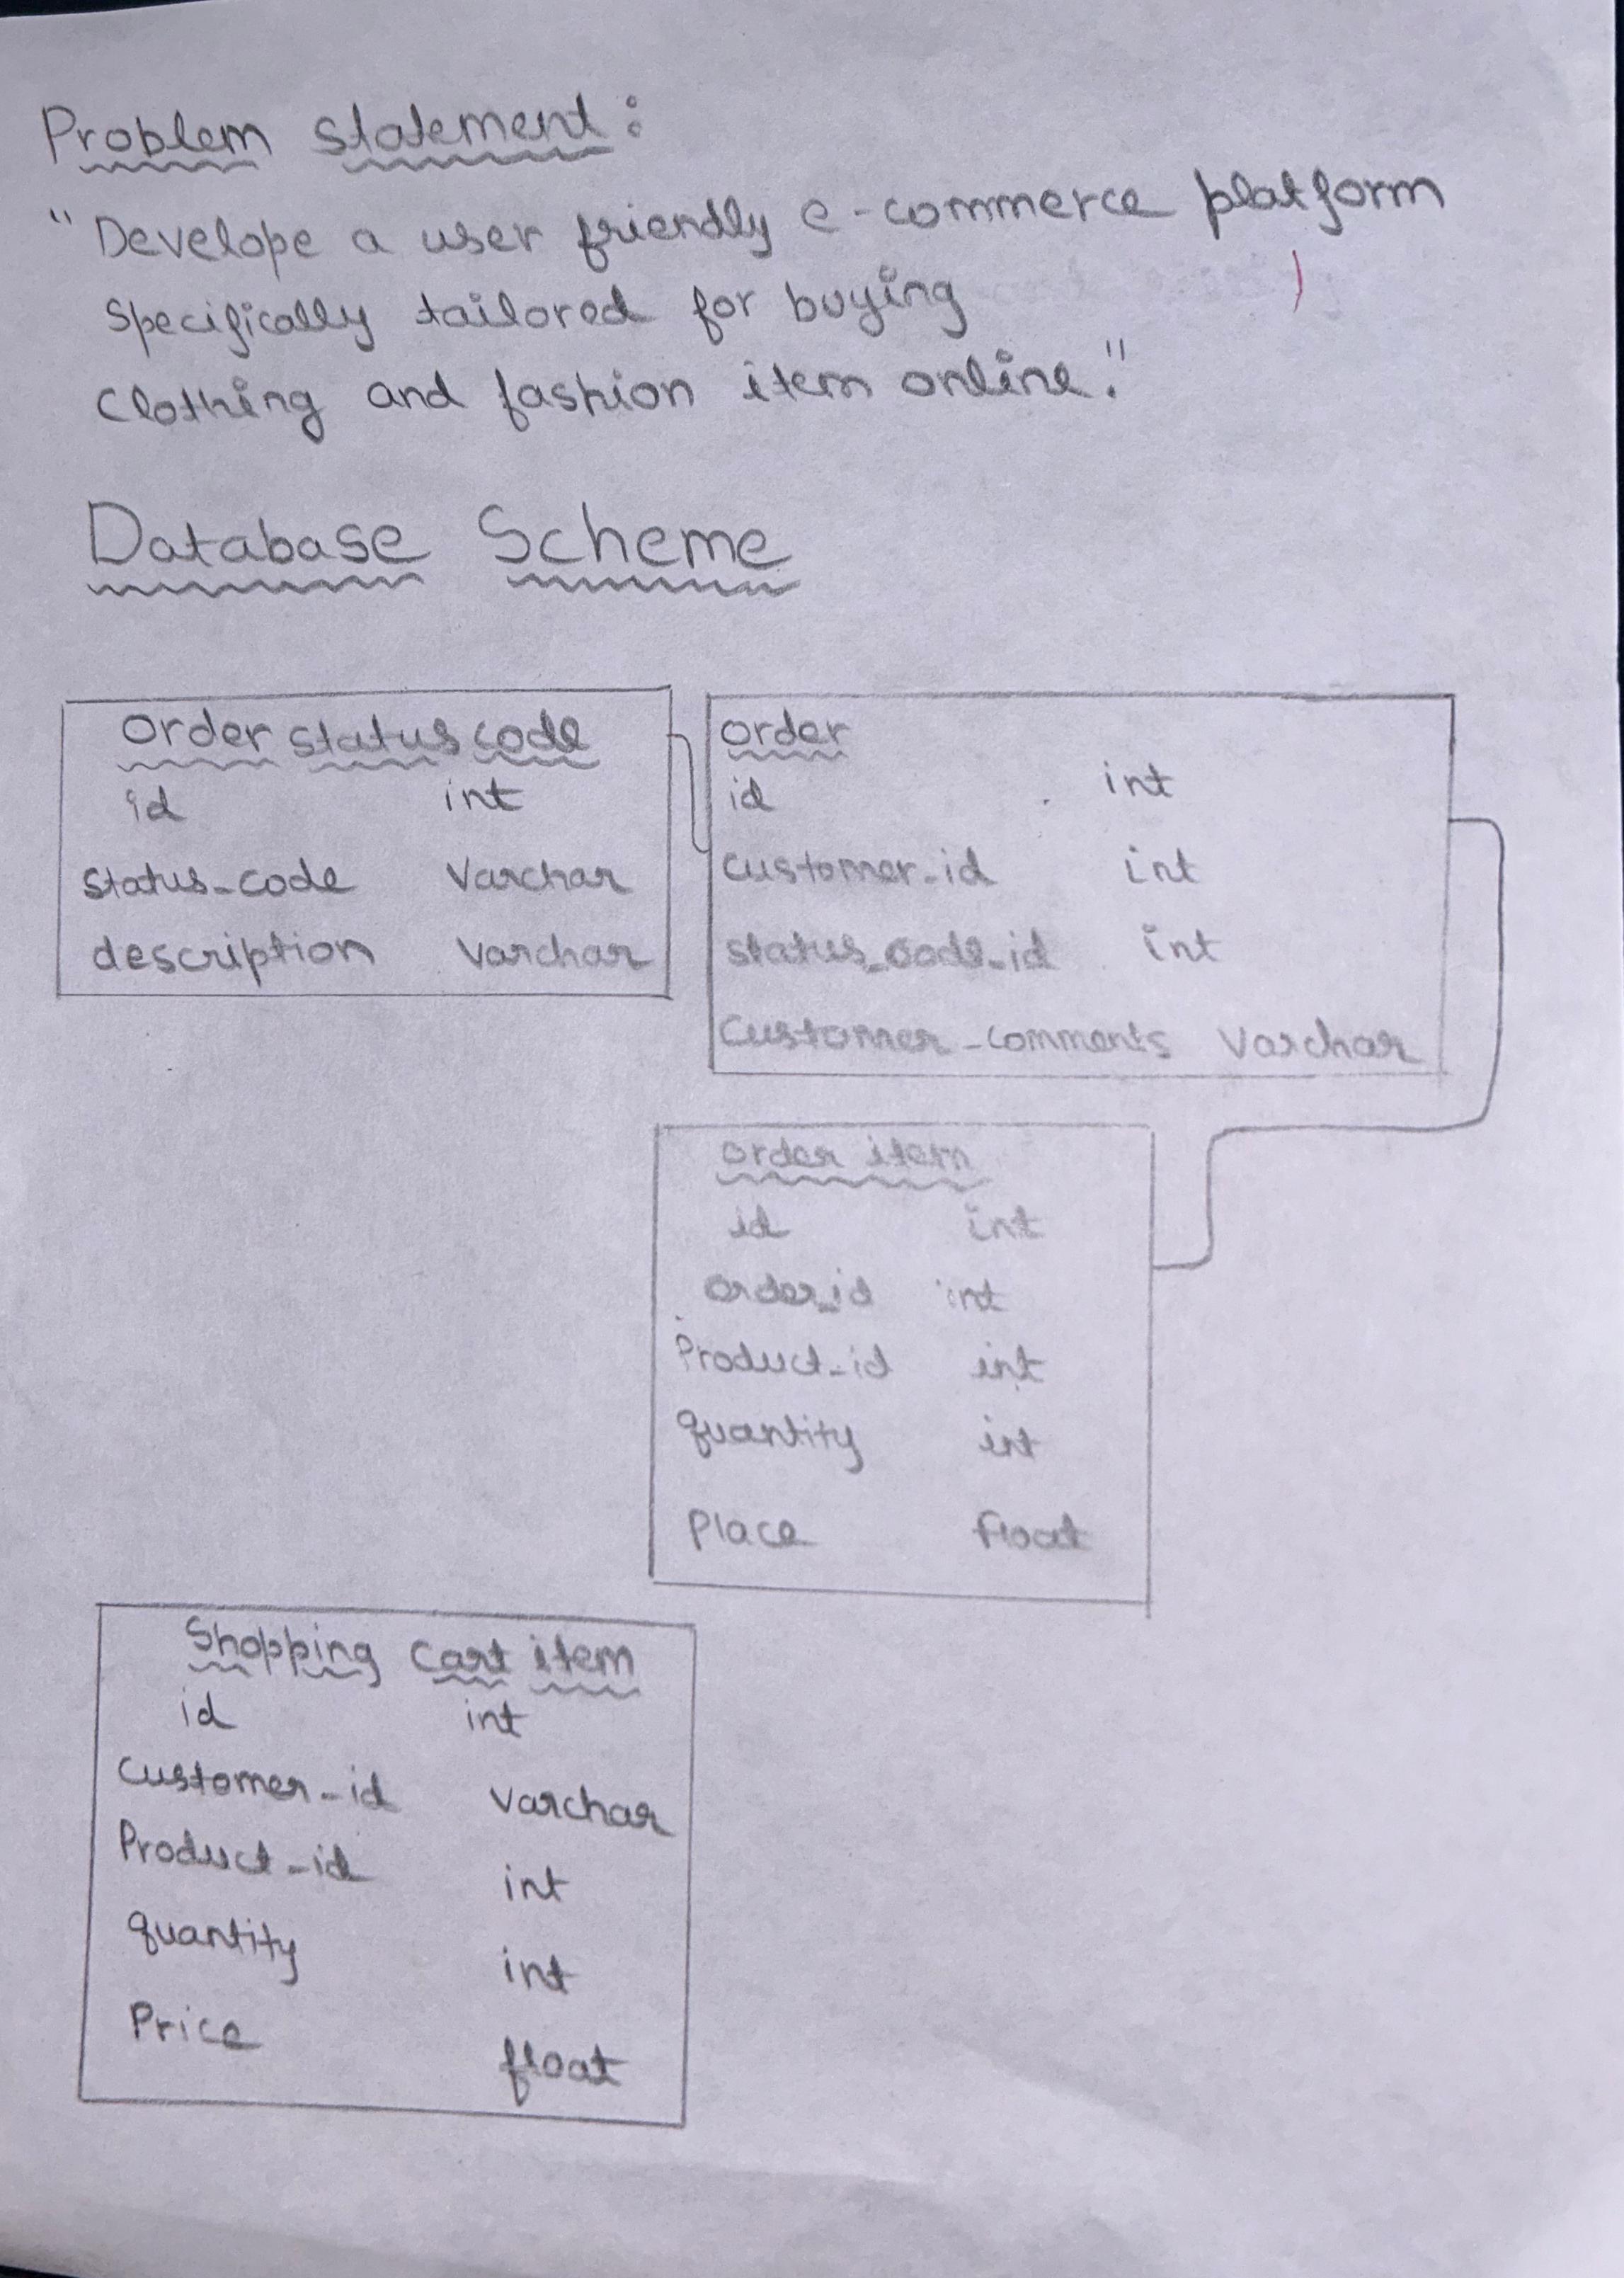 Problem statement:
"Develope a user friendly e-commerce platform
specifically tailored for buying
clothing and fashion item online."
Database Scheme
Order status code
id int
status_code Varchar
description Varchar
order
id int
customer_id int
status_code_id int
Customer_comments Varchar
order item
id int
order_id int
Product_id int
quantity int
Place float
Shopping cart item
id int
Customer_id varchar
Product_id int
quantity int
Price float